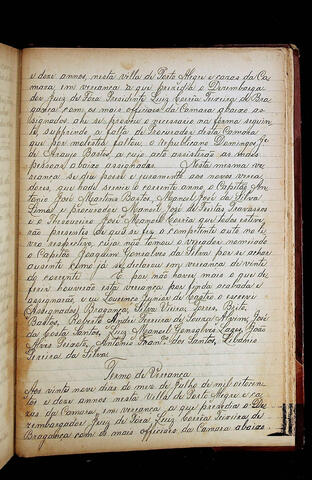 e doze annos, nesta villa de Porto Alegre e cazas da Ca-
mara, em vereança a que prezidio o Dezembarga-
dor Juiz de Fora Presidente Luiz Corrêa Teixeira de Bra-
gança com os mais officiaes da Camara abaixo as-
signados ahi se proveu o necessario na forma seguin-
te, supprindo a falta de Procurador desta Camara
que por molestia faltou, o republicano Domingos Je.
de Araujo Bastos, a cujo acto assistirão as mais
pessoas abaixo assignadas. Nesta mesma ve-
reança se diu posse e juramento aos novos verea-
dores, que hade servir o corrente anno o Capitão An-
tonio José Martins Bastos, Manoel José da Silva
Lima, e procurador Manoel José de Freitas Travassos
e o Thezoureiro José Manoel Corrêa que todos estive-
rão presentes de que se fez o competente auto no li-
vro respectivo, cuja não tomou o vereador nomeado
o Capitão Joaquim Gonsalves da Silva por se achar
auzente como já se declarou em vereança de vinte
do corrente. E por não haver mais o que de-
ferir houverão esta vereança por finda acabada e
assignarão, e eu Lourenço Junior de Castro o escrevi
Assignados Bragança, Silva Vieira, Torres, Brito,
Bastos, Roberto Ambr. Pereira de Souza Alvim, José
da Costa Santos, Luiz Manoel Gonsalves Lages, João
Alves Peixoto, Antonio Fran.co dos Santos, Libanio
Pereira da Silva.
Termo de Vereança
Aos vinte nove dias do mez de Julho de mil oitocen-
tos e doze annos nesta Villa de Porto Alegre e ca-
zas da Camara, em vereança a que prezidio o De-
zembargador Juiz de Fora Luiz Corrêa Teixeira de
Bragança com os mais officiaes da Camara abaixo